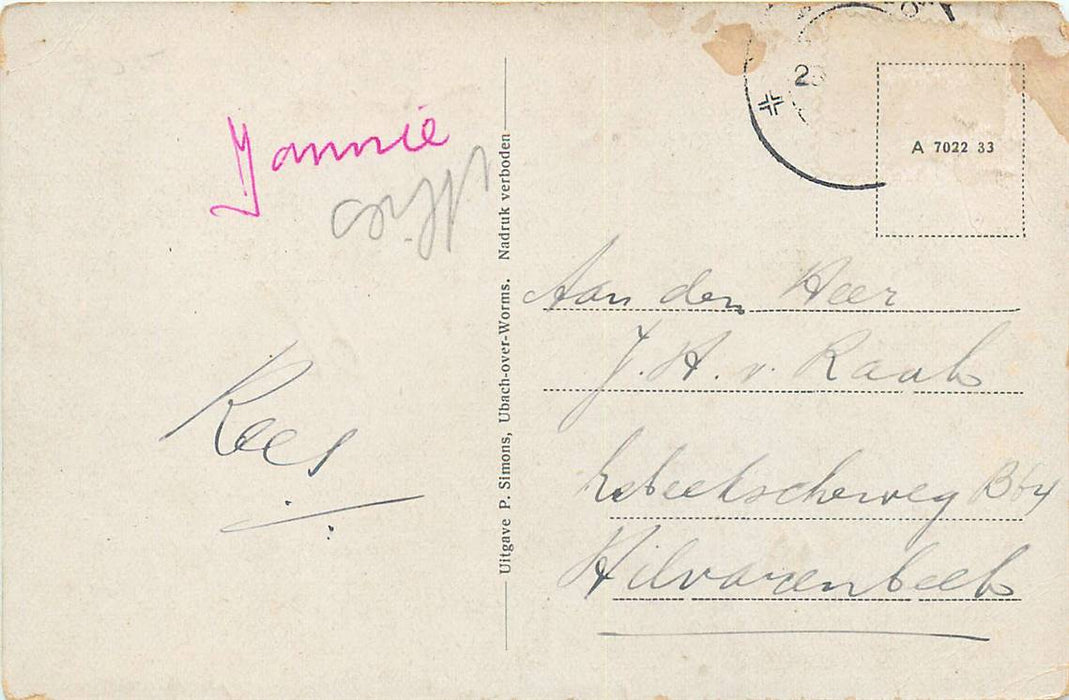 Jannie
Kees
Uitgave P. Simons, Ubach-over-Worms. Nadruk verboden
23
A 7022 33
Aan den Heer
J. H. v. Raak
Esbeekscheweg B64
Hilvarenbeek